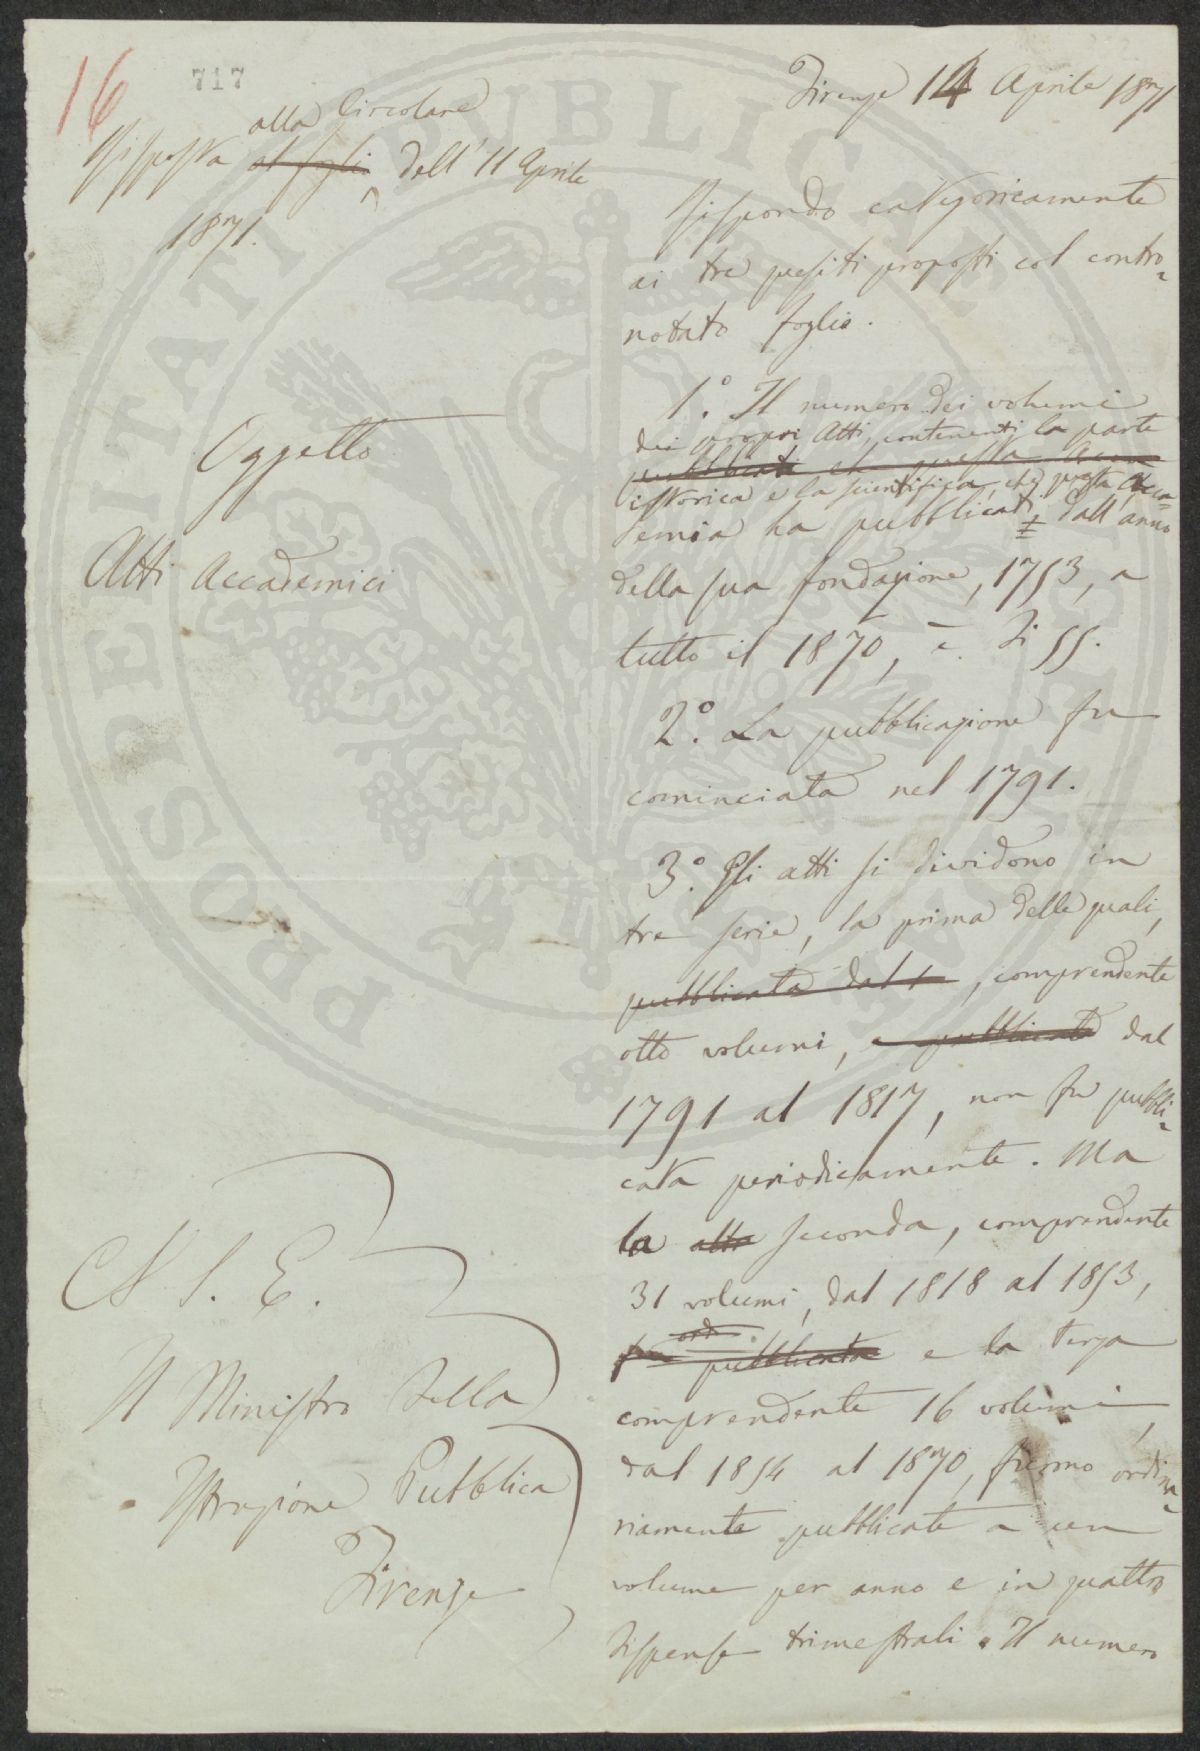 16
717
Firenze 14 Aprile 1871
alla Circolare
Risposta al fogli dell' 11 Aprile
1871.
Rispondo categoricamente
ai tre quesiti proposti col contro-
notato foglio.
Oggetto
Atti Accademici
1.° Il numero dei volumi
dei propri Atti, contenenti la parte
pubblicati che questa Accad
istorica e la scientifica, che questa Acca-
demia ha pubblicati dall'anno
della sua fondazione, 1753, a
tutto il 1870, è di 55.
2.° La pubblicazione fu
cominciata nel 1791.
3.° Gli atti si dividono in
tre serie, la prima delle quali,
pubblicata dal 1, comprendente
otto volumi, e pubblicata dal
1791 al 1817, non fu pubbli-
cata periodicamente. Ma
la altra seconda, comprendente
31 volumi, dal 1818 al 1853,
ordi
fu pubblicata e la terza
comprendente 16 volumi,
dal 1854 al 1870, furono ordina-
riamente pubblicate a un
volume per anno e in quattro
dispense trimestrali. Il numero
A S. E.
Il Ministro della
Istruzione Pubblica
Firenze
PROSPERITATI PUBLICAE